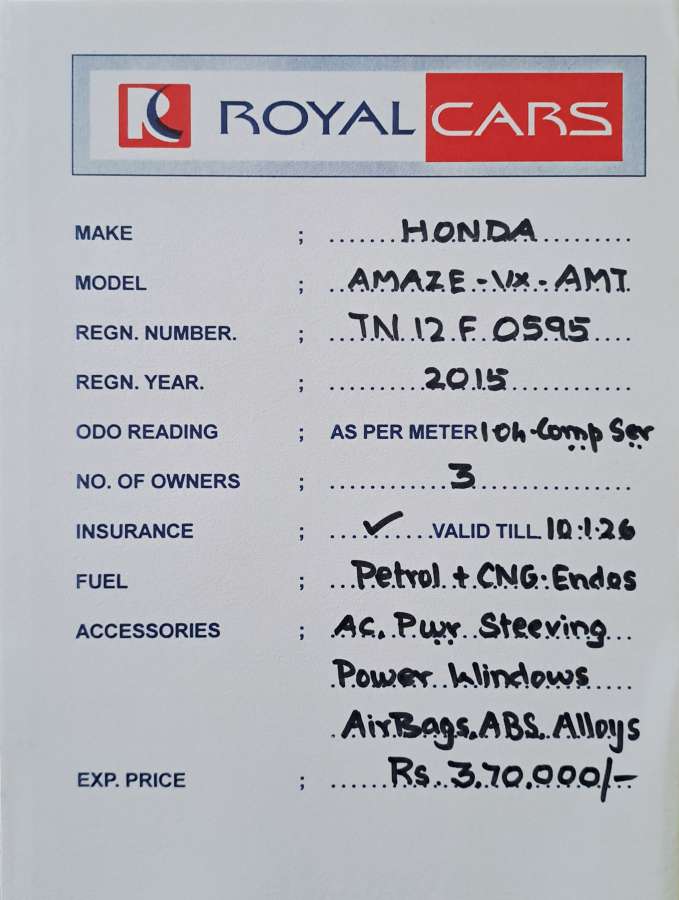 R ROYAL CARS
MAKE ; HONDA
MODEL ; AMAZE - VX - AMT
REGN. NUMBER. ; TN 12 F 0595
REGN. YEAR. ; 2015
ODO READING ; AS PER METER 10h-Comp Ser
NO. OF OWNERS ; 3
INSURANCE ; ✓ VALID TILL 10.1.26
FUEL ; Petrol + CNG. Endos
ACCESSORIES ; AC, Pwr Steering
Power Windows
AirBags, ABS, Alloys
EXP. PRICE ; Rs. 3,70,000/-